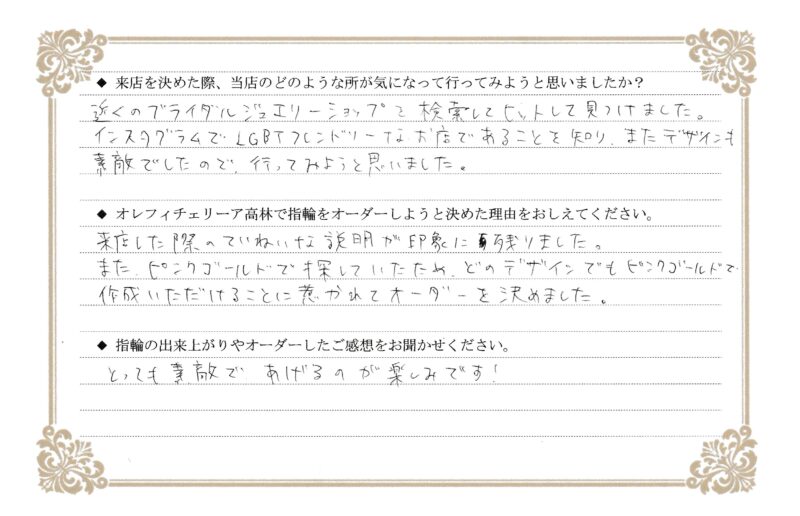 ◆ 来店を決めた際、当店のどのような所が気になって行ってみようと思いましたか？
近くのブライダルジュエリーショップで検索してヒットして見つけました。
インスタグラムでLGBTフレンドリーなお店であることを知り、またデザインも
素敵でしたので、行ってみようと思いました。
◆ オレフィチェリーア高林で指輪をオーダーしようと決めた理由をおしえてください。
来店した際のていねいな説明が印象に残りました。
また、ピンクゴールドで探していたため、どのデザインでもピンクゴールドで
作成いただけることに惹かれてオーダーを決めました。
◆ 指輪の出来上がりやオーダーしたご感想をお聞かせください。
とっても素敵で あげるのが楽しみです!